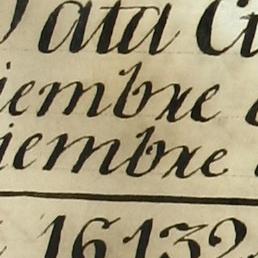 Data Ci
iembre
iembre
16132